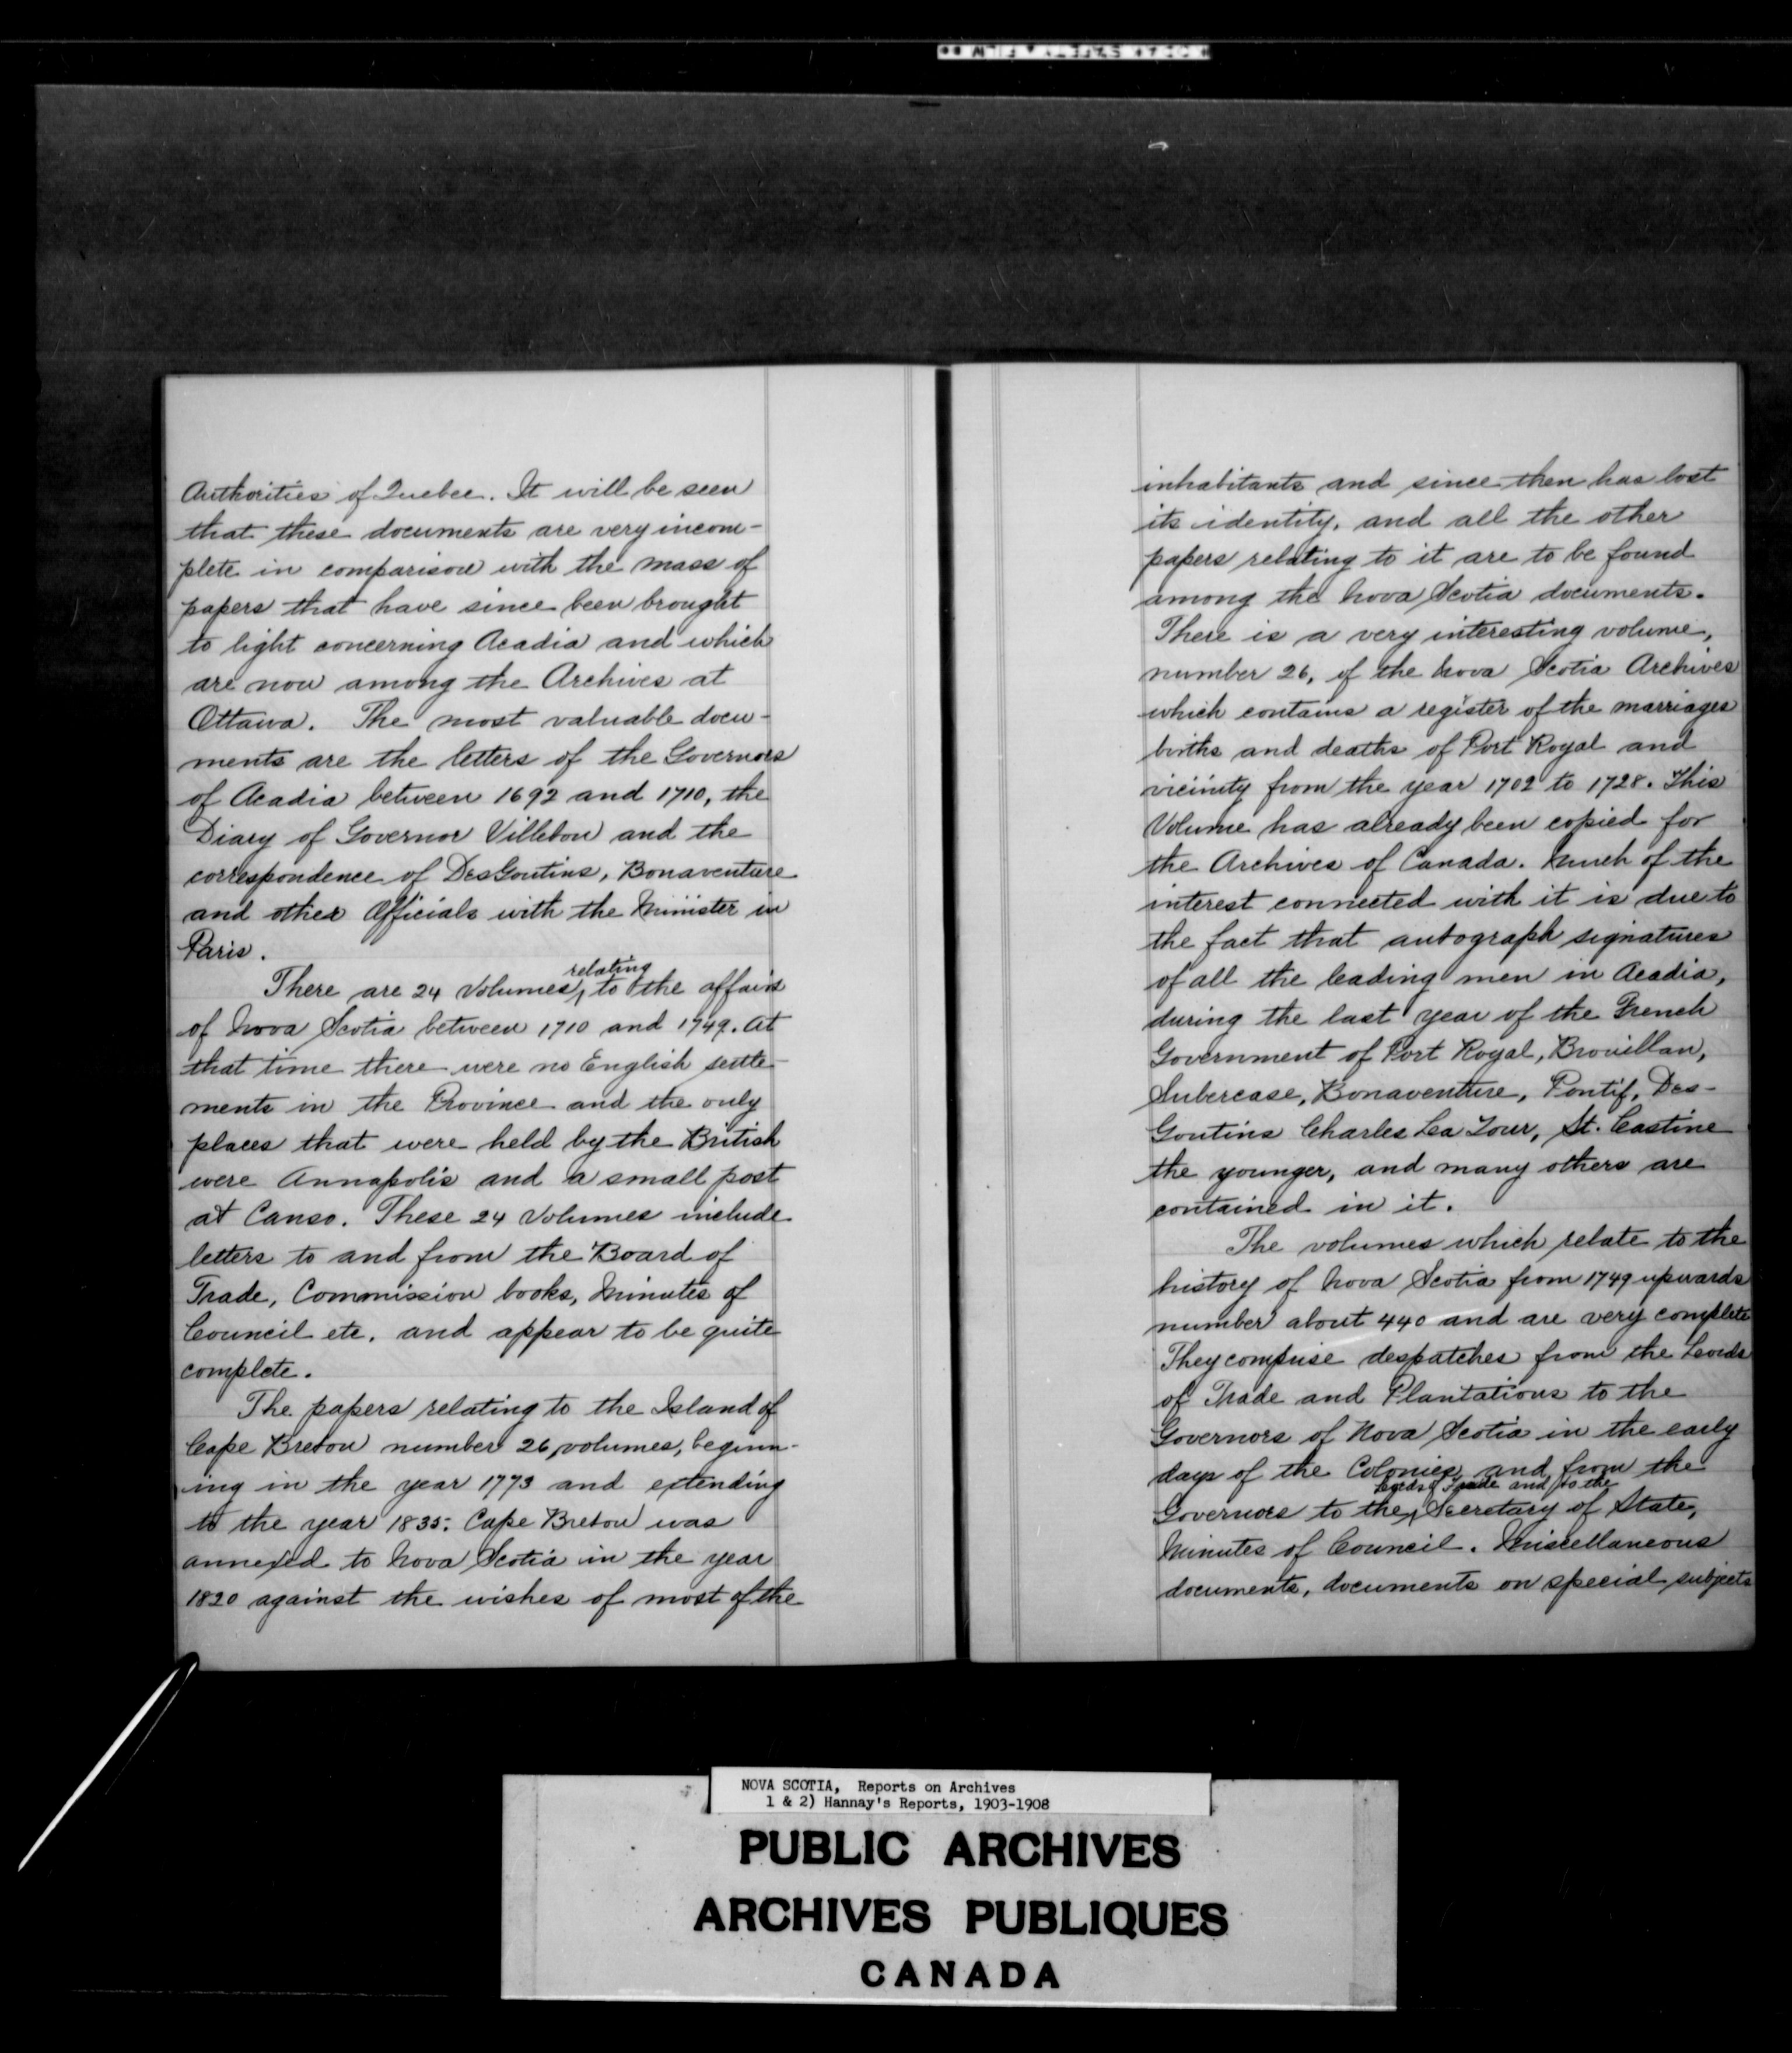 Authorities of Quebec. It will be seen
that these documents are very incom-
plete in comparison with the mass of
papers that have since been brought
to light concerning Acadia and which
are now among the Archives at
Ottawa. The most valuable docu-
ments are the letters of the Governors
of Acadia between 1692 and 1710, the
Diary of Governor Villebon and the
correspondence of DesGoutins, Bonaventure
and other Officials with the Minister in
Paris.
relating
There are 24 Volumes, to the affairs
of Nova Scotia between 1710 and 1749. At
that time there were no English settle-
ments in the Province and the only
places that were held by the British
were Annapolis and a small post
at Canso. These 24 Volumes include
letters to and from the Board of
Trade, Commission books, Minutes of
Council etc. and appear to be quite
complete.
The papers relating to the Island of
Cape Breton number 26, volumes, beginn-
ing in the year 1773 and extending
to the year 1835. Cape Breton was
annexed to Nova Scotia in the year
1820 against the wishes of most of the
inhabitants and since then has lost
its identity, and all the other
papers relating to it are to be found
among the Nova Scotia documents.
There is a very interesting volume,
number 26, of the Nova Scotia Archives
which contains a register of the marriages
births and deaths of Port Royal and
vicinity from the year 1702 to 1728. This
Volume has already been copied for
the Archives of Canada. Much of the
interest connected with it is due to
the fact that autograph signatures
of all the leading men in Acadia,
during the last year of the French
Government of Port Royal, Brouillan,
Subercase, Bonaventure, Pontif, Des-
Goutins Charles La Tour, St. Castine
the younger, and many others are
contained in it.
The volumes which relate to the
history of Nova Scotia from 1749 upwards
number about 440 and are very complete
They comprise despatches from the Lords
of Trade and Plantations to the
Governors of Nova Scotia in the early
days of the Colonies, and from the
Lords of Trade and to the
Governors to the, Secretary of State,
Minutes of Council. Miscellaneous
documents, documents on special subjects
NOVA SCOTIA, Reports on Archives
1 & 2) Hannay's Reports, 1903-1908
PUBLIC ARCHIVES
ARCHIVES PUBLIQUES
CANADA